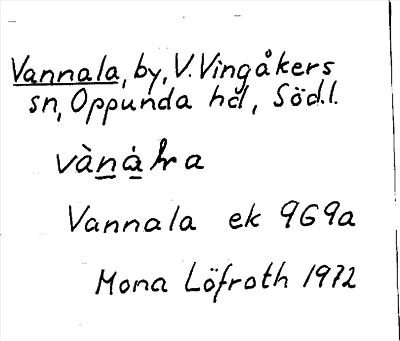 Vannala, by, V. Vingåkers
sn, Oppunda hd, Södl.
Vannala ek 969a
Mona Löfroth 1972